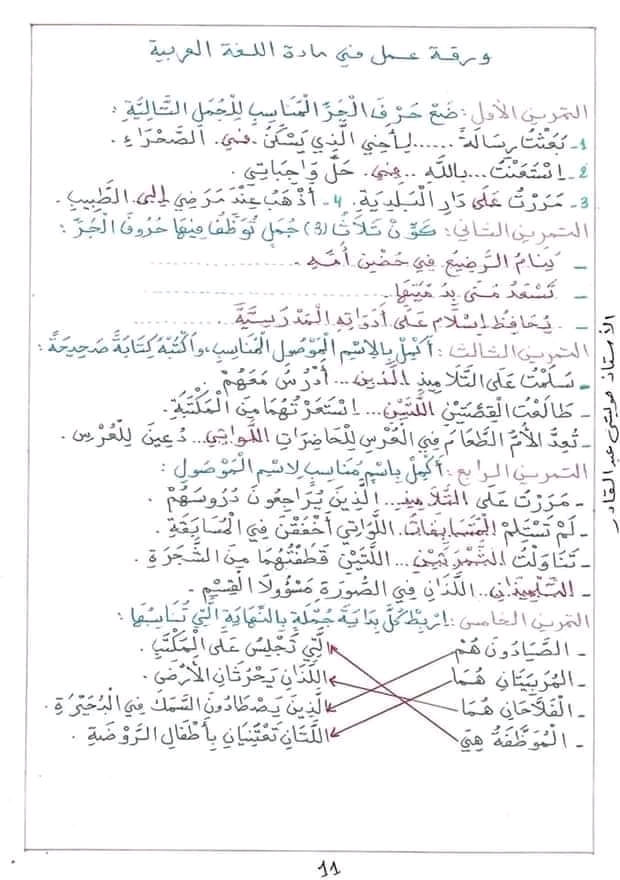 ورقة عمل في مادة اللغة العربية
التمرين الأول: ضَعْ حَرْفَ الْجَرِّ الْمُنَاسِبِ لِلْجُمَلِ التَّالِيَةِ :
1- بَعَثْتُ رِسَالَةً ......لِأَخِي الَّذِي يَسْكُنُ .فِي. الصَّحْرَاءِ .
2- اِسْتَعَنْتُ ...بِاللَّهِ ..فِي. حَلِّ وَاجِبَاتِي .
3- مَرَرْتُ عَلَى دَارِ الْبَلَدِيَةِ. 4- أَذْهَبُ عِنْدَ مَرَضِي إِلَى الطَّبِيبِ .
التمرين الثاني: كَوِّنْ ثَلَاثَ (3) جُمَلٍ تُوَظِّفُ فِيهَا حُرُوفَ الْجَرِّ :
- يَنَامُ الرَّضِيعُ فِي حُضْنِ أُمِّهِ ......
- تَسْعَدُ مُنَى بِدُمْيَتِهَا ......
- يُحَافِظُ إِسْلَام عَلَى أَدَوَاتِهِ الْمَدْرَسِيَّةِ ......
التمرين الثالث: أَكْمِلْ بِالِاسْمِ الْمَوْصُولِ الْمُنَاسِبِ، وَاكْتُبْهُ كِتَابَةً صَحِيحَةً :
- سَلَّمْتُ عَلَى التَّلَامِيذِ الَّذِينَ ... أَدْرُسُ مَعَهُمْ .
- طَالَعْتُ الْقِصَّتَيْنِ اللَّتَيْنِ ... اِسْتَعَرْتُهُمَا مِنَ الْمَكْتَبَةِ .
- تُعِدُّ الْأُمُّ الطَّعَامَ فِي الْعُرْسِ لِلْحَاضِرَاتِ اللَّوَاتِي ... دُعِينَ لِلْعُرْسِ .
التمرين الرابع: أَكْمِلْ بِاسْمٍ مُنَاسِبٍ لِاسْمِ الْمَوْصُولِ :
- مَرَرْتُ عَلَى التَّلَامِيذِ ... الَّذِينَ يُرَاجِعُونَ دُرُوسَهُمْ .
- لَمْ تَسْتَلِمْ الْمُتَسَابِقَاتُ. اللَّوَاتِي أَخْفَقْنَ فِي الْمُسَابَقَةِ .
- تَنَاوَلْتُ الثَّمْرَتَيْنِ ... اللَّتَيْنِ قَطَفْتُهُمَا مِنَ الشَّجَرَةِ .
- التِّلْمِيذَانِ .. اللَّذَانِ فِي الصُّورَةِ مَسْؤُولَا الْقِسْمِ .
التمرين الخامس: اِرْبِطْ كُلَّ بِدَايَةِ جُمْلَةٍ بِالنِّهَايَةِ الَّتِي تُنَاسِبُهَا :
- الصَّيَّادُونَ هُمْ الَّتِي تَجْلِسُ عَلَى الْمَكْتَبِ .
- الْمُرَبِيَتَانِ هُمَا اللَّذَانِ يَحْرُثَانِ الْأَرْضَ .
- الْفَلَّاحَانِ هُمَا الَّذِينَ يَصْطَادُونَ السَّمَكَ فِي الْبُحَيْرَةِ .
- الْمُوَظَّفَةُ هِيَ اللَّتَانِ تَعْتَنِيَانِ بِأَطْفَالِ الرَّوْضَةِ .
11